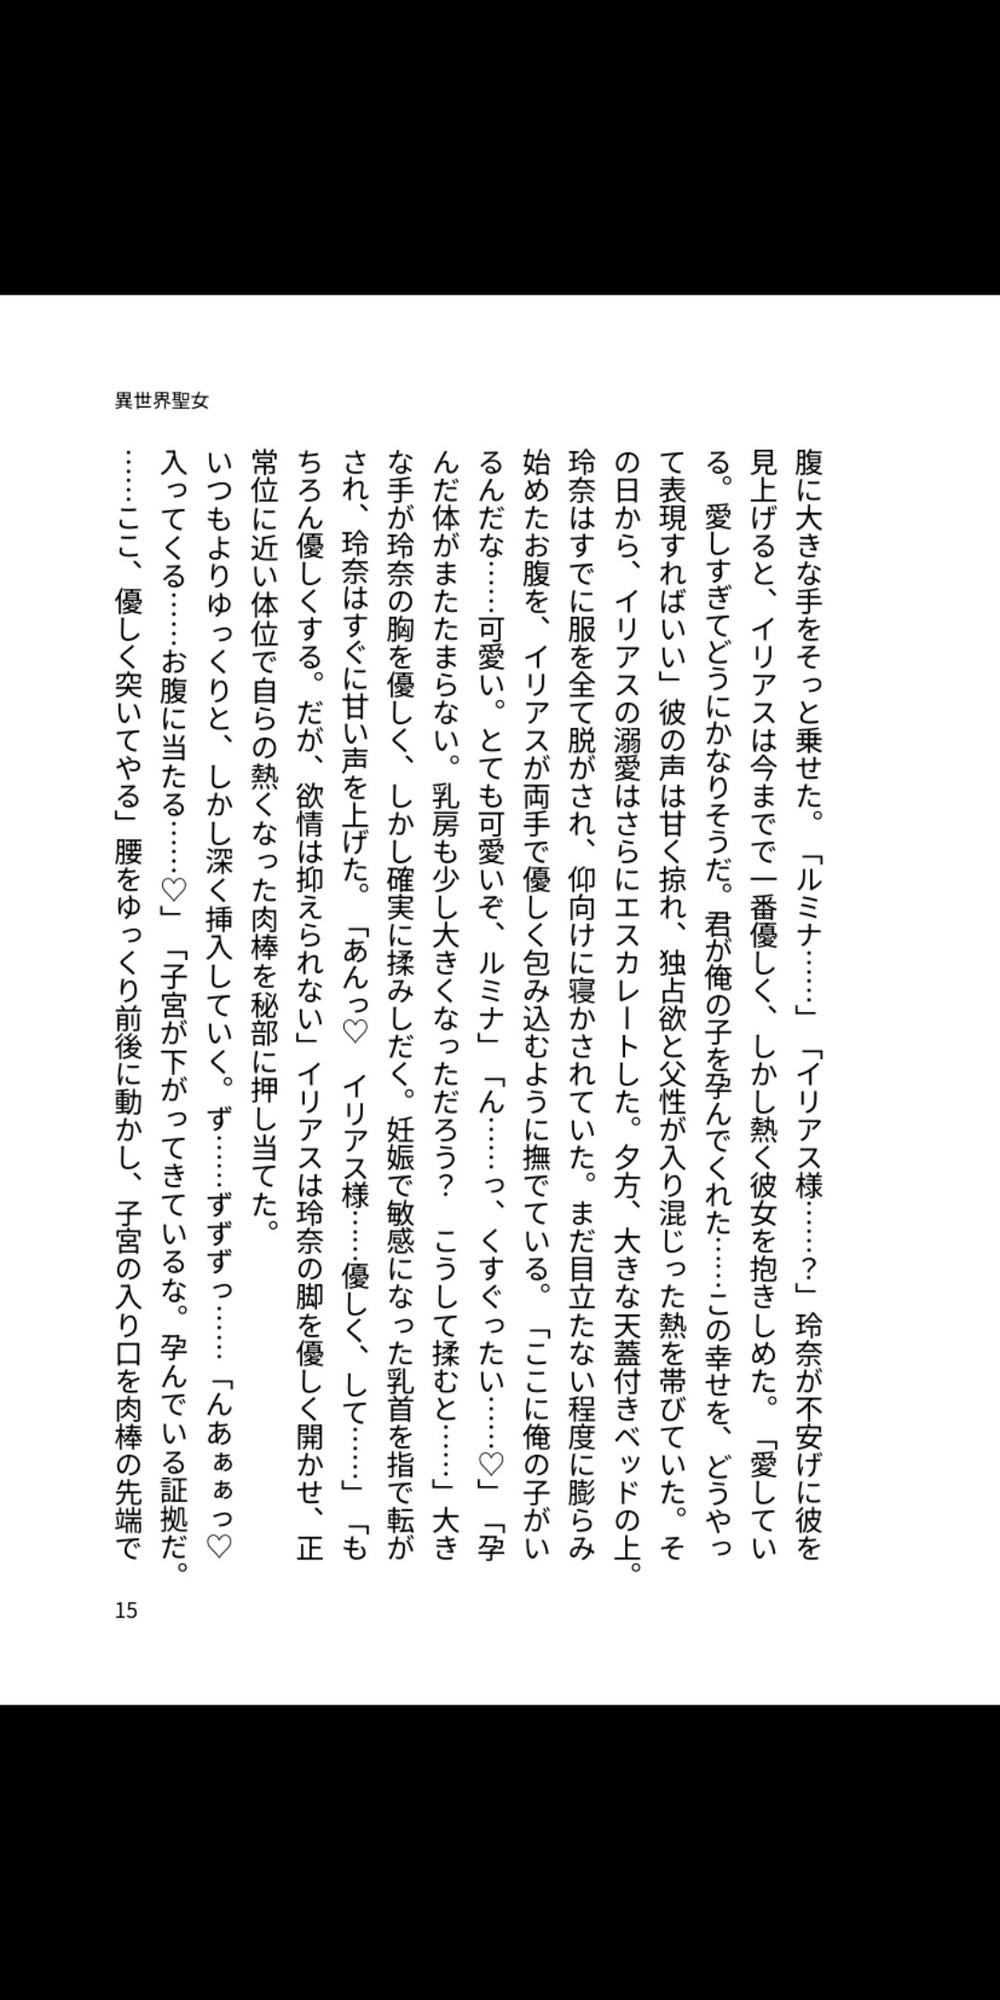 異世界聖女
腹に大きな手をそっと乗せた。「ルミナ……」「イリアス様……？」玲奈が不安げに彼を
見上げると、イリアスは今までで一番優しく、しかし熱く彼女を抱きしめた。「愛してい
る。愛しすぎてどうにかなりそうだ。君が俺の子を孕んでくれた……この幸せを、どうやっ
て表現すればいい」彼の声は甘く掠れ、独占欲と父性が入り混じった熱を帯びていた。そ
の日から、イリアスの溺愛はさらにエスカレートした。夕方、大きな天蓋付きベッドの上。
玲奈はすでに服を全て脱がされ、仰向けに寝かされていた。まだ目立たない程度に膨らみ
始めたお腹を、イリアスが両手で優しく包み込むように撫でている。「ここに俺の子がい
るんだな……可愛い。とても可愛いぞ、ルミナ」「ん……っ、くすぐったい……♡」「孕
んだ体がまたたまらない。乳房も少し大きくなっただろう？　こうして揉むと……」大き
な手が玲奈の胸を優しく、しかし確実に揉みしだく。妊娠で敏感になった乳首を指で転が
され、玲奈はすぐに甘い声を上げた。「あんっ♡　イリアス様……優しく、して……」「も
ちろん優しくする。だが、欲情は抑えられない」イリアスは玲奈の脚を優しく開かせ、正
常位に近い体位で自らの熱くなった肉棒を秘部に押し当てた。
いつもよりゆっくりと、しかし深く挿入していく。ず……ずずずっ……「んあぁぁっ♡
入ってくる……お腹に当たる……♡」「子宮が下がってきているな。孕んでいる証拠だ。
……ここ、優しく突いてやる」腰をゆっくり前後に動かし、子宮の入り口を肉棒の先端で
15